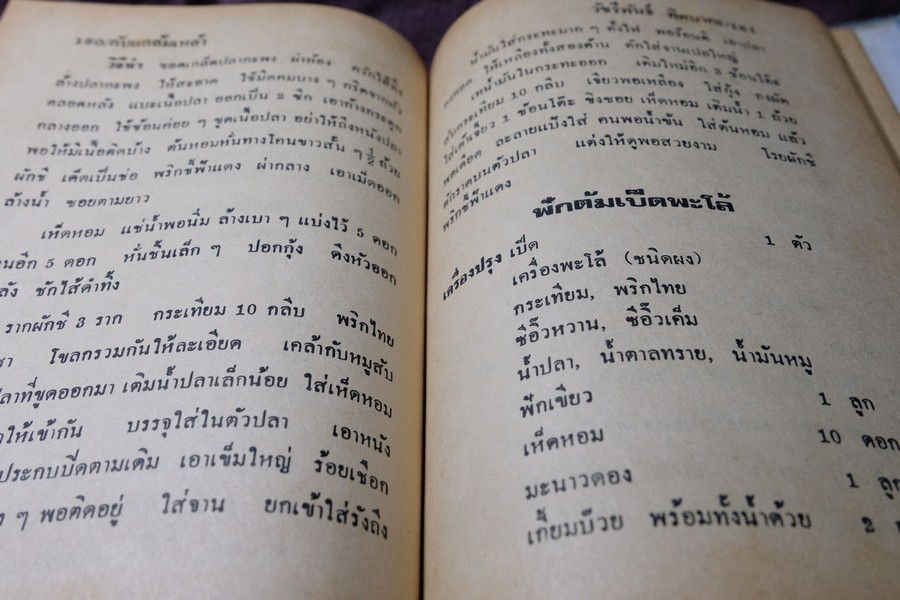 วิธีทำ ขอดเกล็ดปลากะพง ผ่าท้อง ควักไส้ทิ้ง
ล้างปลากะพง ให้สะอาด ใช้มีดคมบาง ๆ กรีดจากหัว
ตลอดหลัง แบะเนื้อปลา ออกเป็น 2 ซีก เอาก้างกระดูก
กลางออก ใช้ช้อนค่อย ๆ ขูดเนื้อปลา อย่าให้ถึงหนังปลา
พอให้มีเนื้อติดบ้าง ต้นหอมหั่นทางโคนขาวสั้น ๆ ½ ถ้วย
ผักชี เด็ดเป็นช่อ พริกชี้ฟ้าแดง ผ่ากลาง เอาเม็ดออก
ล้างน้ำ ซอยตามยาว
เห็ดหอม แช่น้ำพอนิ่ม ล้างเบา ๆ แบ่งไว้ 5 ดอก
อีก 5 ดอก หั่นชิ้นเล็ก ๆ ปอกกุ้ง ดึงหัวออก
ชักไส้ดำทิ้ง
รากผักชี 3 ราก กระเทียม 10 กลีบ พริกไทย
โขลกรวมกันให้ละเอียด เคล้ากับหมูสับ
ที่ขูดออกมา เติมน้ำปลาเล็กน้อย ใส่เห็ดหอม
ให้เข้ากัน บรรจุใส่ในตัวปลา เอาหนัง
ประกบปิดตามเดิม เอาเข็มใหญ่ ร้อยเชือก
ๆ พอติดอยู่ ใส่จาน ยกเข้าใส่รังถึง
น้ำมันใส่กระทะมาก ๆ ตั้งไฟ พอร้อนดี เอาปลา
ลงทอด ให้เหลืองทั้งสองด้าน ตักใส่จานเปลใหญ่
เทน้ำมันในกระทะออก เติมใหม่อีก 3 ช้อนโต๊ะ
สับกระเทียม 10 กลีบ เจียวพอเหลือง ใส่กุ้ง ลงผัด
ใส่เต้าเจี้ยว 1 ช้อนโต๊ะ ขิงซอย เห็ดหอม เติมน้ำ 1 ถ้วย
พอเดือด ละลายแป้งใส่ คนพอน้ำข้น ใส่ต้นหอม แล้ว
ตักราดบนตัวปลา แต่งให้ดูพอสวยงาม โรยผักชี
พริกชี้ฟ้าแดง
ฟักต้มเป็ดพะโล้
เครื่องปรุง เป็ด 1 ตัว
เครื่องพะโล้ (ชนิดผง)
กระเทียม, พริกไทย
ซีอิ๊วหวาน, ซีอิ๊วเค็ม
น้ำปลา, น้ำตาลทราย, น้ำมันหมู
ฟักเขียว 1 ลูก
เห็ดหอม 10 ดอก
มะนาวดอง 1 ลูก
เกี้ยมบ๊วย พร้อมทั้งน้ำด้วย 2